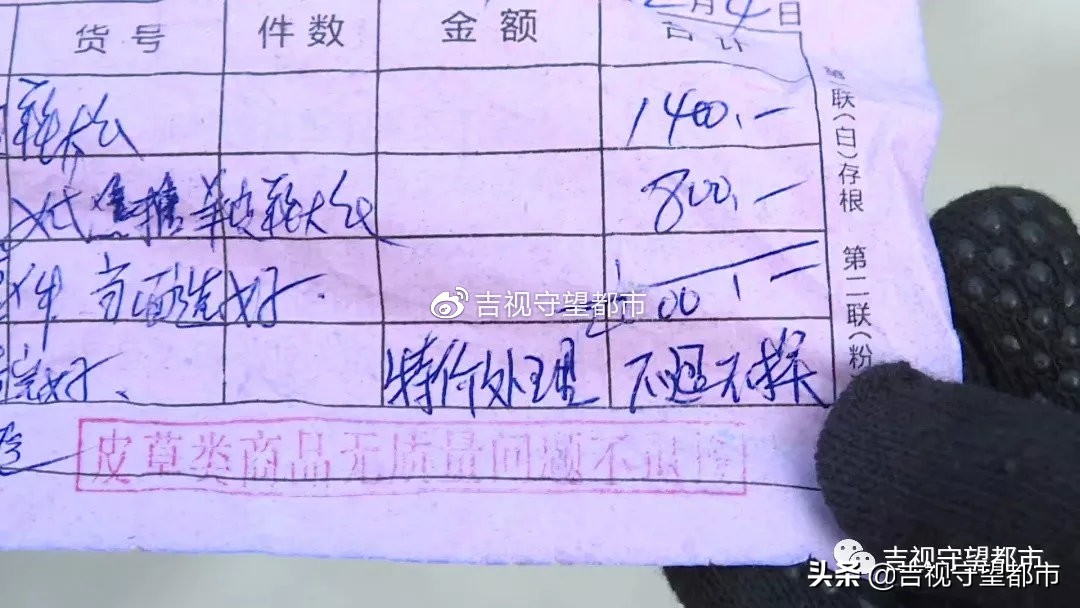 2月4日
货号 件数 金额 合计
鞋大么 1400.—
焦糖羊皮鞋大么 800.—
件 当面选好. 00.—
完好、 特价处理 不退不换
皮草类商品无质量问题不退换
第一联(白)存根 第二联(粉
吉视守望都市
吉视守望都市
头条 @吉视守望都市